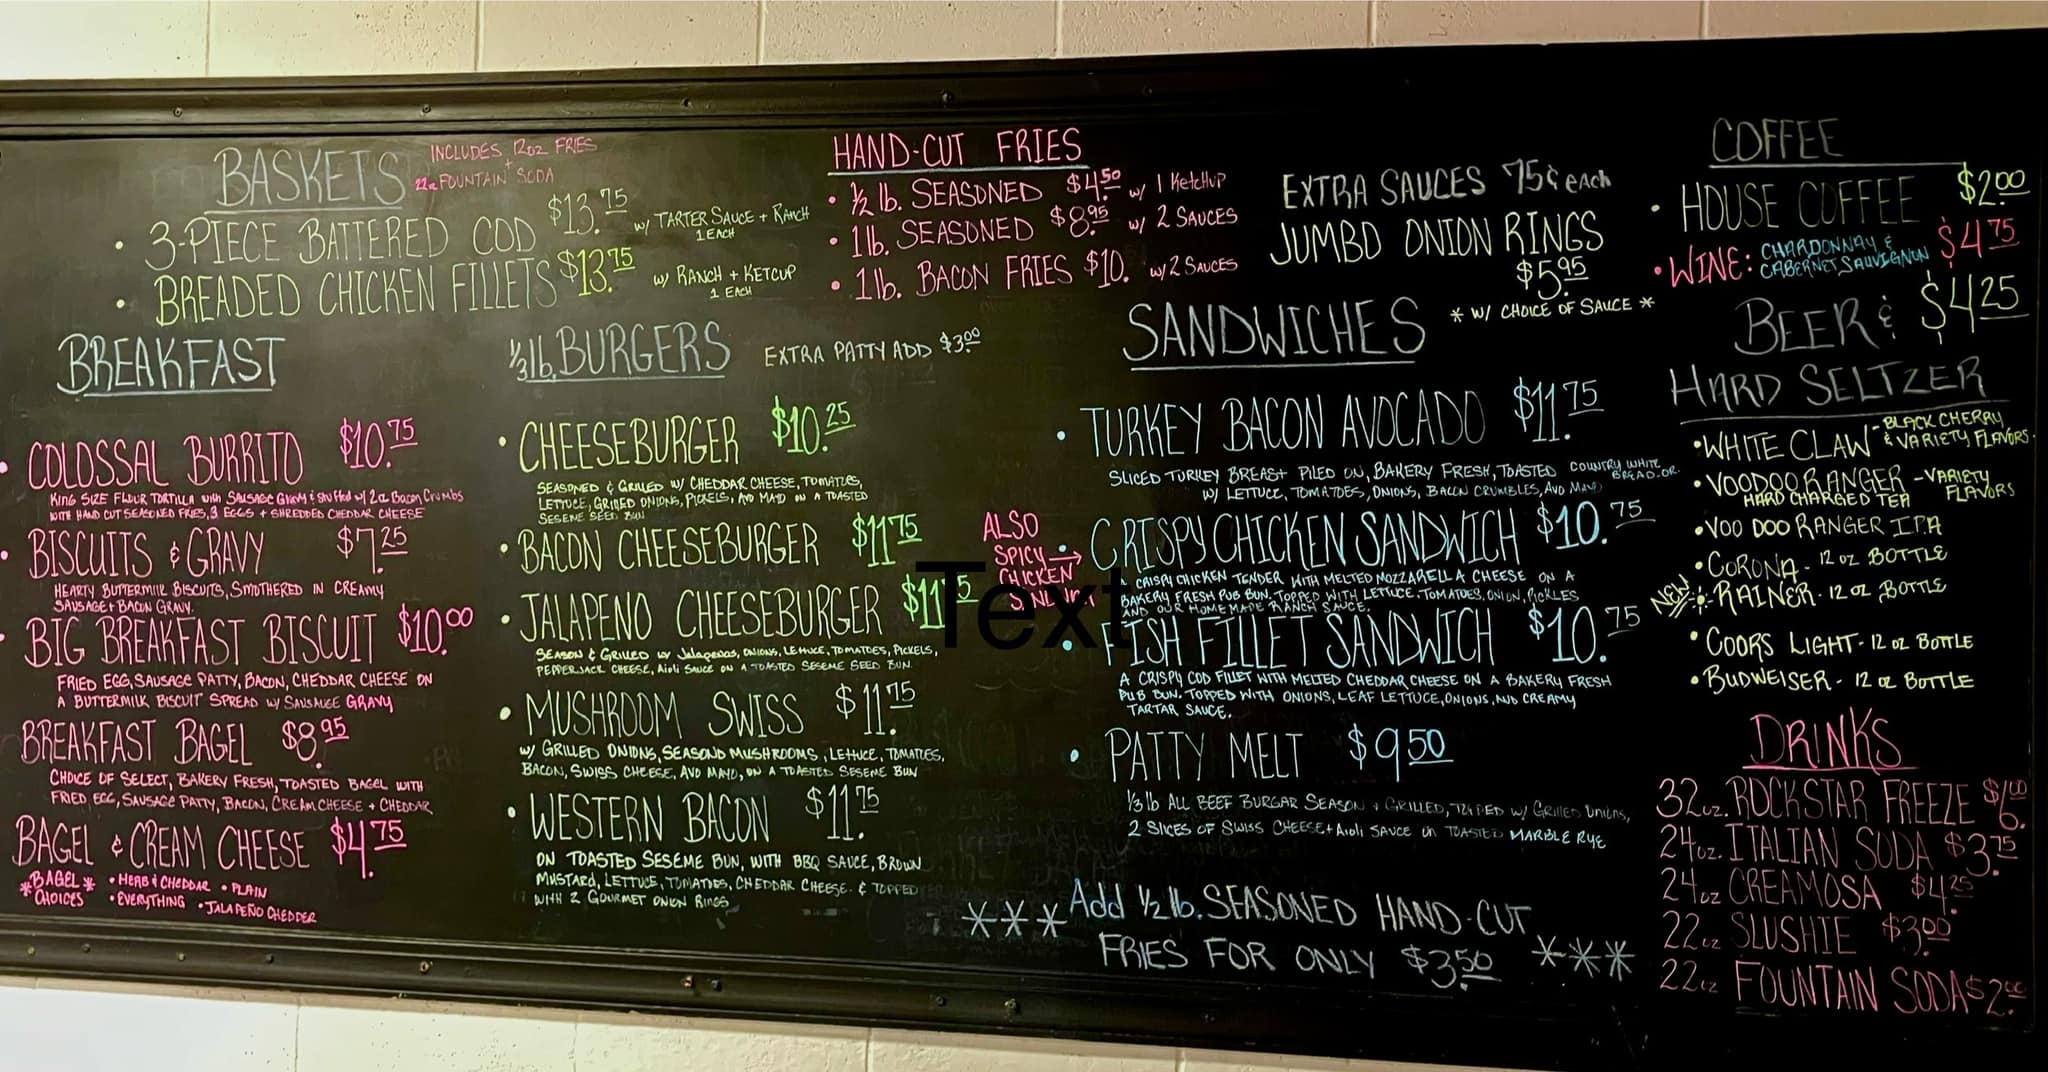 BASKETS
INCLUDES 12oz FRIES
+
22oz FOUNTAIN SODA
• 3-PIECE BATTERED COD $13.75 w/ TARTER SAUCE + RANCH
1 EACH
• BREADED CHICKEN FILLETS $13.75 w/ RANCH + KETCUP
1 EACH
HAND-CUT FRIES
• 1/2 lb. SEASONED $4.50 w/ 1 KETCHUP
• 1lb. SEASONED $8.95 w/ 2 SAUCES
• 1lb. BACON FRIES $10. w/ 2 SAUCES
EXTRA SAUCES 75¢ EACH
JUMBO ONION RINGS
$5.95
* W/ CHOICE OF SAUCE *
COFFEE
• HOUSE COFFEE $2.00
• WINE: CHARDONNAY & CABERNET SAUVIGNON $4.75
BREAKFAST
• COLOSSAL BURRITO $10.75
KING SIZE FLOUR TORTILLA with SAUSAGE GRAVY & stuffed w/ 2oz Bacon Crumbs
WITH HAND CUT SEASONED FRIES, 3 EGGS + SHREDDED CHEDDAR CHEESE
• BISCUITS & GRAVY $7.25
HEARTY BUTTERMILK BISCUITS, SMOTHERED IN CREAMY
SAUSAGE + BACON GRAVY.
• BIG BREAKFAST BISCUIT $10.00
FRIED EGG, SAUSAGE PATTY, BACON, CHEDDAR CHEESE ON
A BUTTERMILK BISCUIT SPREAD W/ SAUSAUGE GRAVY
BREAKFAST BAGEL $8.95
CHOICE OF SELECT, BAKERY FRESH, TOASTED BAGEL WITH
FRIED EGG, SAUSAGE PATTY, BACON, CREAM CHEESE + CHEDDAR
BAGEL & CREAM CHEESE $4.75
*BAGEL CHOICES* • HERB & CHEDDAR • PLAIN
• EVERYTHING • JALAPEÑO CHEDDER
1/3 lb. BURGERS EXTRA PATTY ADD $3.00
• CHEESEBURGER $10.25
SEASONED & GRILLED W/ CHEDDAR CHEESE, TOMATOES,
LETTUCE, GRILLED ONIONS, PICKELS, AND MAYO ON A TOASTED
SESEME SEED BUN
• BACON CHEESEBURGER $11.75
• JALAPENO CHEESEBURGER $11.75
SEASON & GRILLED W/ Jalapenos, ONIONS, LETTUCE, TOMATOES, PICKELS,
PEPPERJACK CHEESE, Aioli SAUCE ON A TOASTED SESEME SEED BUN.
• MUSHROOM SWISS $11.75
W/ GRILLED ONIONS, SEASOND MUSHROOMS, LETTUCE, TOMATOES,
BACON, SWISS CHEESE, AND MAYO, ON A TOASTED SESEME BUN
• WESTERN BACON $11.75
ON TOASTED SESEME BUN, WITH BBQ SAUCE, BROWN
MUSTARD, LETTUCE, TOMATOES, CHEDDAR CHEESE & TOPPED
WITH 2 GOURMET ONION RINGS
Text
SANDWICHES
• TURKEY BACON AVOCADO $11.75
SLICED TURKEY BREAST PILED ON, BAKERY FRESH, TOASTED COUNTRY WHITE BREAD, OR
W/ LETTUCE, TOMATOES, ONIONS, BACON CRUMBLES, AND MAYO
ALSO
SPICY
CHICKEN
• CRISPY CHICKEN SANDWICH $10.75
A CRISPY CHICKEN TENDER WITH MELTED MOZZARELLA CHEESE ON A
BAKERY FRESH PUB BUN. TOPPED WITH LETTUCE, TOMATOES, ONION, PICKLES
AND OUR HOMEMADE RANCH SAUCE.
• FISH FILLET SANDWICH $10.75
A CRISPY COD FILLET WITH MELTED CHEDDAR CHEESE ON A BAKERY FRESH
PUB BUN. TOPPED WITH ONIONS, LEAF LETTUCE, ONIONS, AND CREAMY
TARTAR SAUCE.
• PATTY MELT $9.50
1/3 lb ALL BEEF BURGAR SEASON + GRILLED, TOPPED W/ GRILLED ONIONS,
2 SLICES OF SWISS CHEESE + Aioli SAUCE ON TOASTED MARBLE RYE
*** Add 1/2 lb. SEASONED HAND-CUT
FRIES FOR ONLY $3.50 ***
BEER & $4.25
HARD SELTZER
• WHITE CLAW - BLACK CHERRY & VARIETY FLAVORS.
• VOODOO RANGER - VARIETY FLAVORS
HARD CHARGED TEA
• VOO DOO RANGER IPA
• CORONA - 12 oz BOTTLE
NEW • RAINER - 12 OZ BOTTLE
• COORS LIGHT - 12 OZ BOTTLE
• BUDWEISER - 12 OZ BOTTLE
DRINKS
32oz. ROCKSTAR FREEZE $6.00
24oz. ITALIAN SODA $3.75
24oz CREAMOSA $4.25
22oz SLUSHIE $3.00
22oz FOUNTAIN SODA $2.00